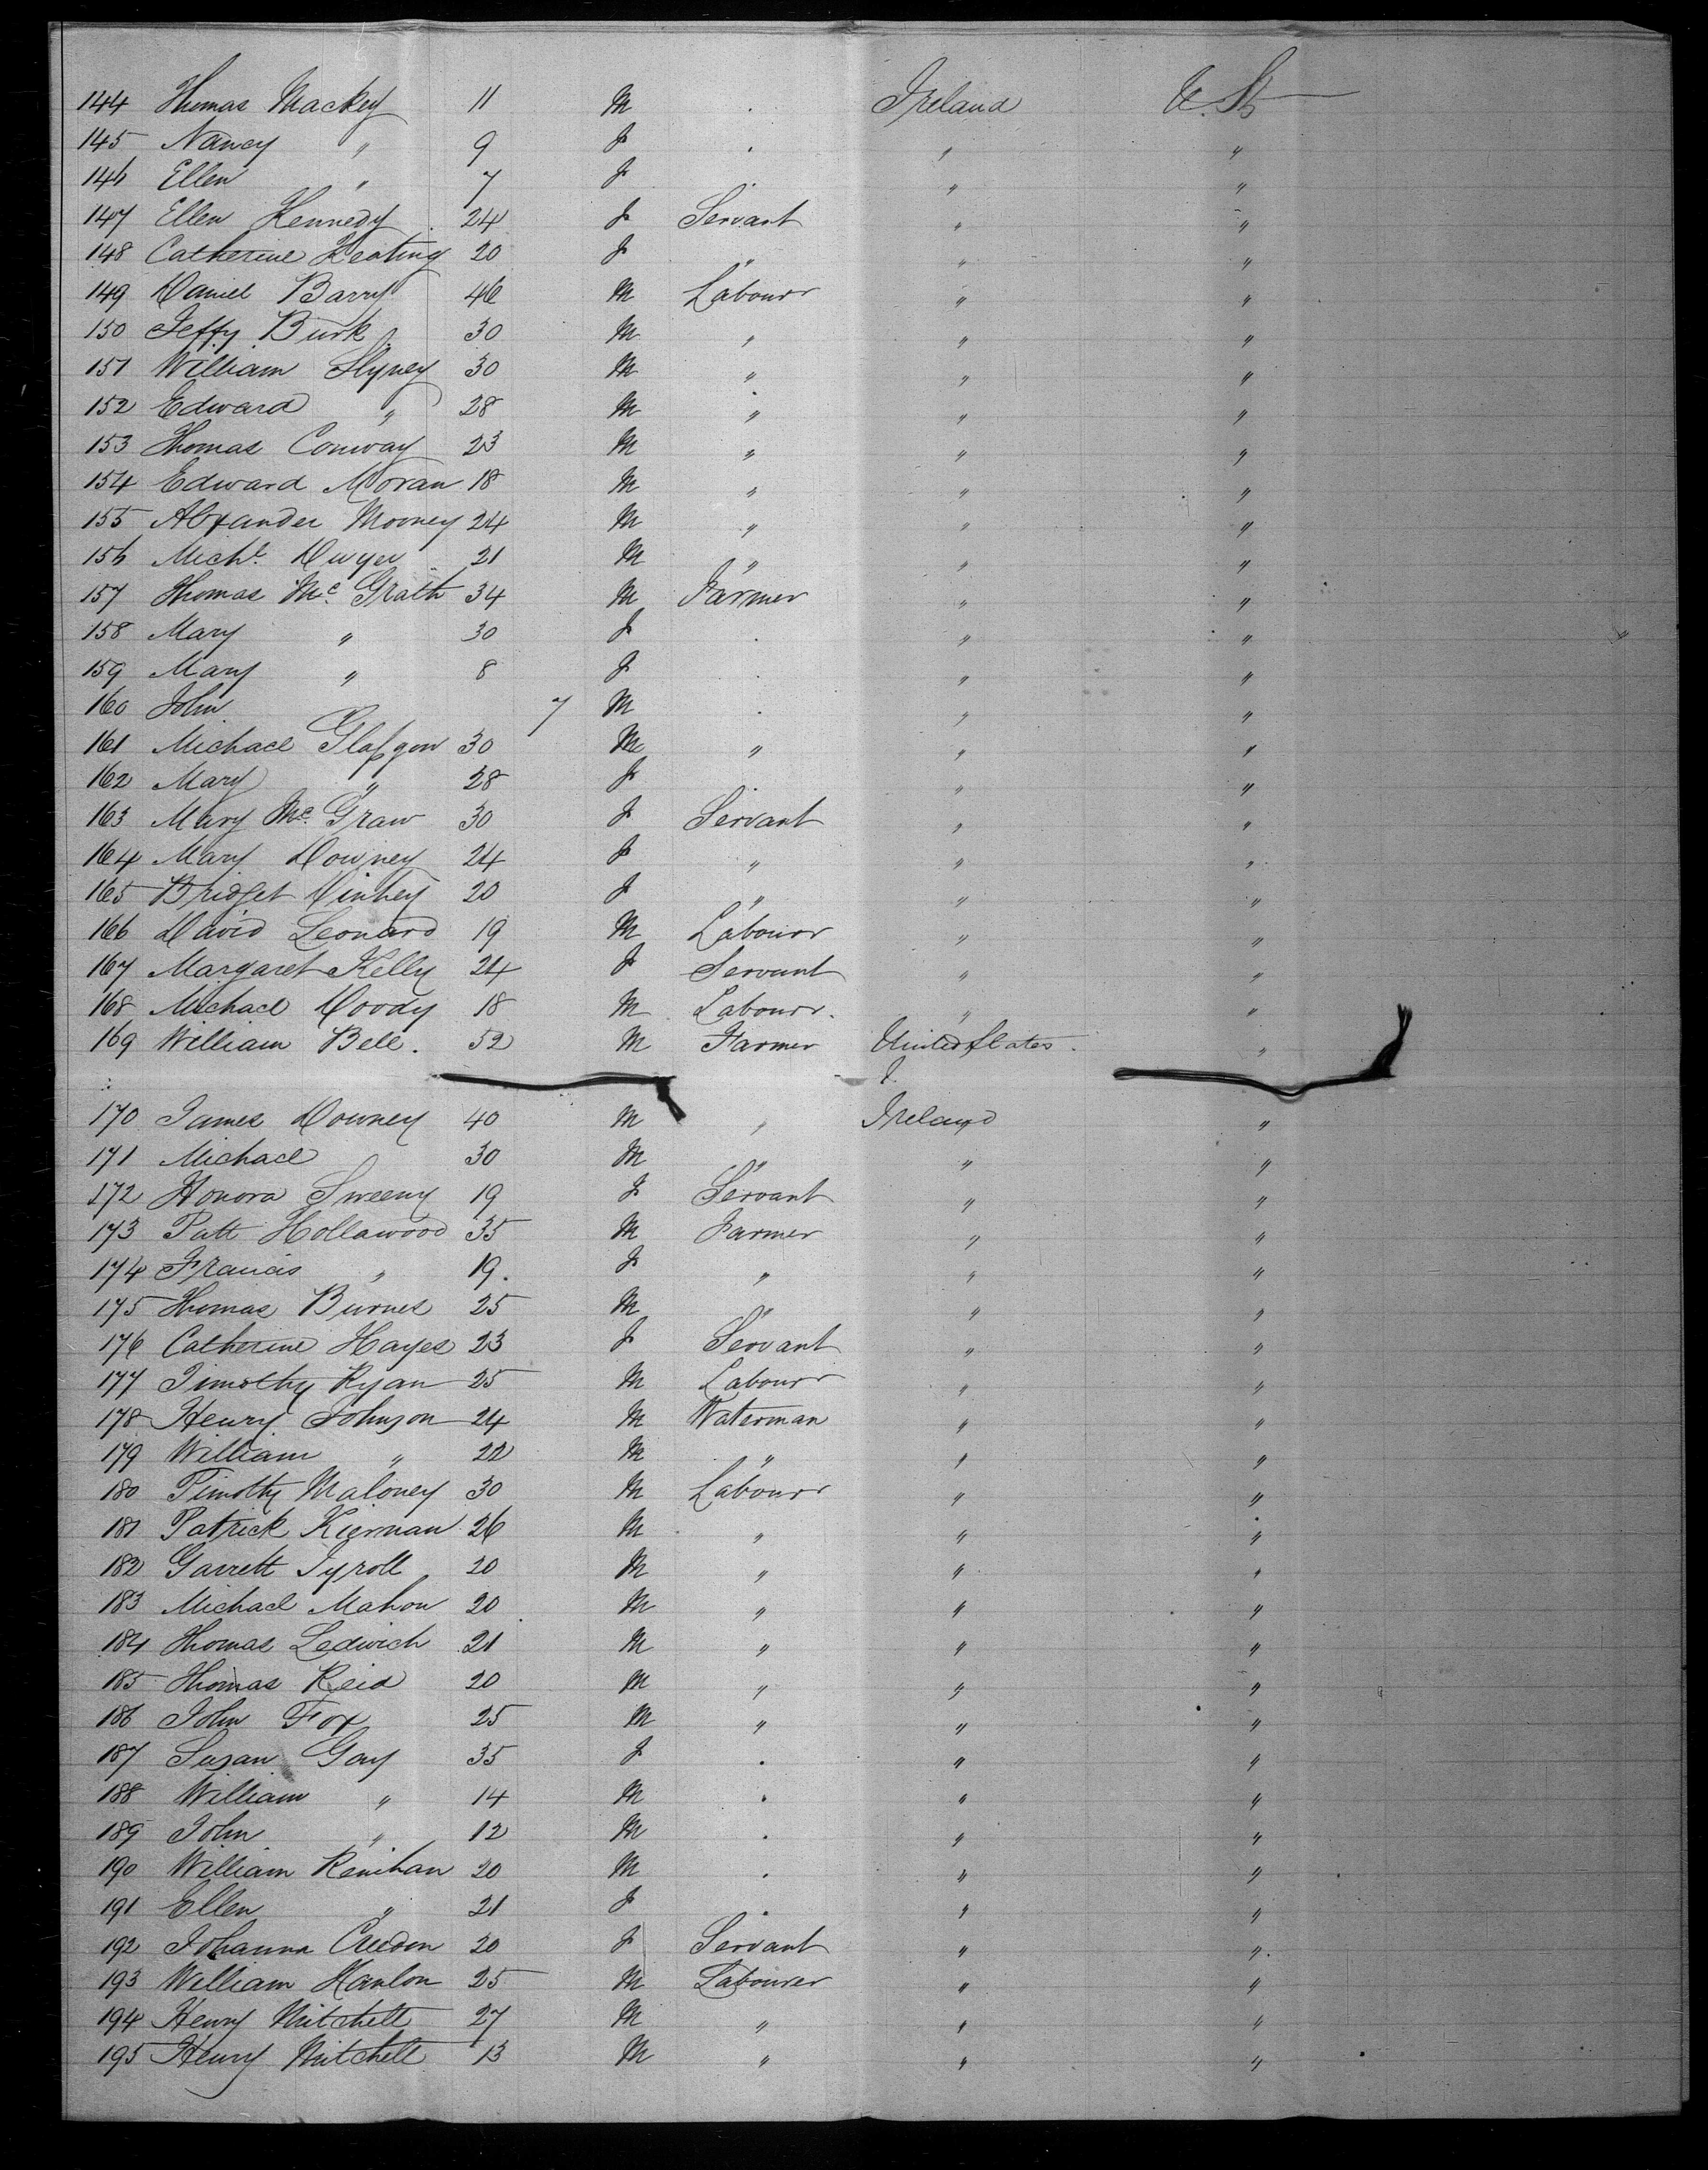 144 Thomas Mackey 11 M . Ireland U. St
145 Nancy " 9 F . " "
146 Ellen " 7 F . " "
147 Ellen Kennedy 24 F Servant " "
148 Catherine Keating 20 F " " "
149 Daniel Barry 46 M Labourr " "
150 Jeffy Burk 30 M " " "
151 William Slyney 30 M " " "
152 Edward " 28 M " " "
153 Thomas Conway 23 M " " "
154 Edward Moran 18 M " " "
155 Alexander Mooney 24 M " " "
156 Michl. Dwyer 21 M " " "
157 Thomas Mc. Grath 34 M Farmer " "
158 Mary " 30 F . " "
159 Mary " 8 F . " "
160 John 7 M . " "
161 Michael Glasgow 30 M " " "
162 Mary " 28 F . " "
163 Mary Mc. Graw 30 F Servant " "
164 Mary Downey 24 F " " "
165 Bridget 20 F " " "
166 David Leonard 19 M Labourr " "
167 Margaret Kelly 24 F Servant " "
168 Michael Doody 18 M Labourr. " "
169 William Bell. 52 M Farmer United States. "
170 James Downey 40 M " Ireland "
171 Michael 30 M " " "
172 Honora Sweeny 19 F Servant " "
173 Patt Hollawood 35 M Farmer " "
174 Francis " 19. F " " "
175 Thomas Burnes 25 M " " "
176 Catherine Hayes 23 F Servant " "
177 Timothy Ryan 25 M Labourr " "
178 Henry Johnson 24 M Waterman " "
179 William " 22 M " " "
180 Timothy Maloney 30 M Labourr " "
181 Patrick Kiernan 26 M " " "
182 Garrett Tyroll 20 M " " "
183 Michael Mahon 20 M " " "
184 Thomas Ledwich 21 M " " "
185 Thomas Reid 20 M " " "
186 John Fox 25 M " " "
187 Susan Gay 35 F . " "
188 William " 14 M . " "
189 John " 12 M . " "
190 William Renihan 20 M . " "
191 Ellen " 21 F . " "
192 Johanna Creedon 20 F Servant " "
193 William Hanlon 25 M Labourer " "
194 Henry Mitchell 27 M " " "
195 Henry Mitchell 13 M " " "